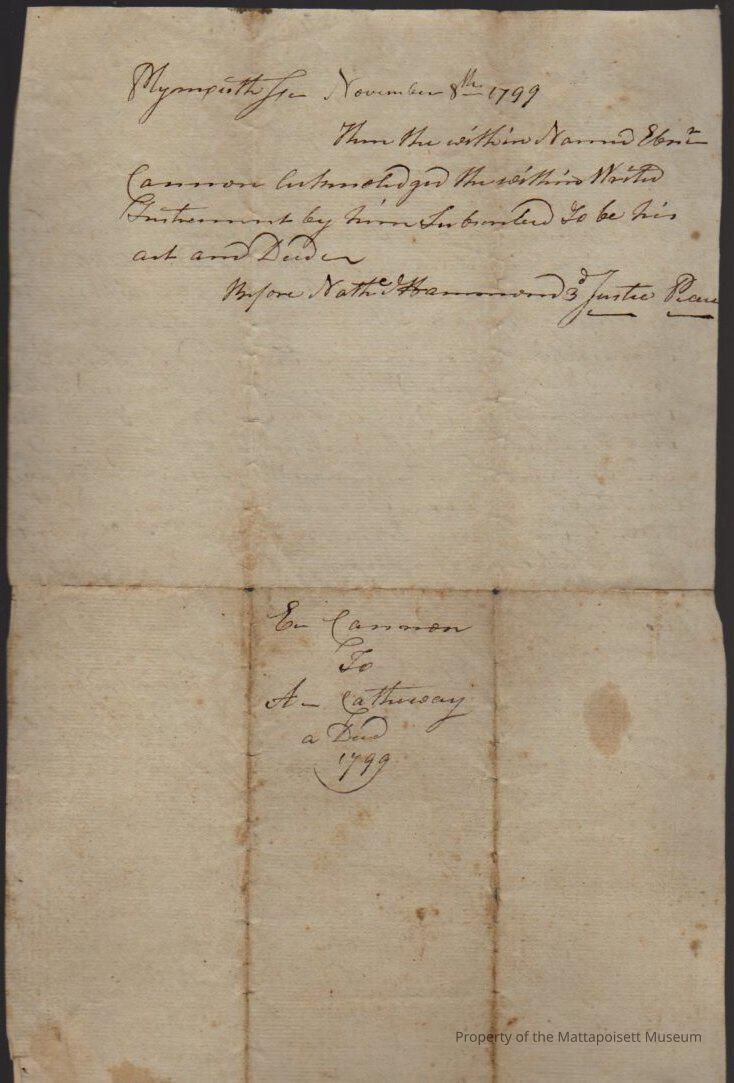 Plymouth Ss November 8th 1799
Then the within Named Ebnr
Cannon Acknoledged the within Writed
Instrument by him Subscribed To be his
act and Deed
Before Nathel Hammond 3d Justic Peace
E Cannon
To
A Cathaway
a Deed
1799
Property of the Mattapoisett Museum